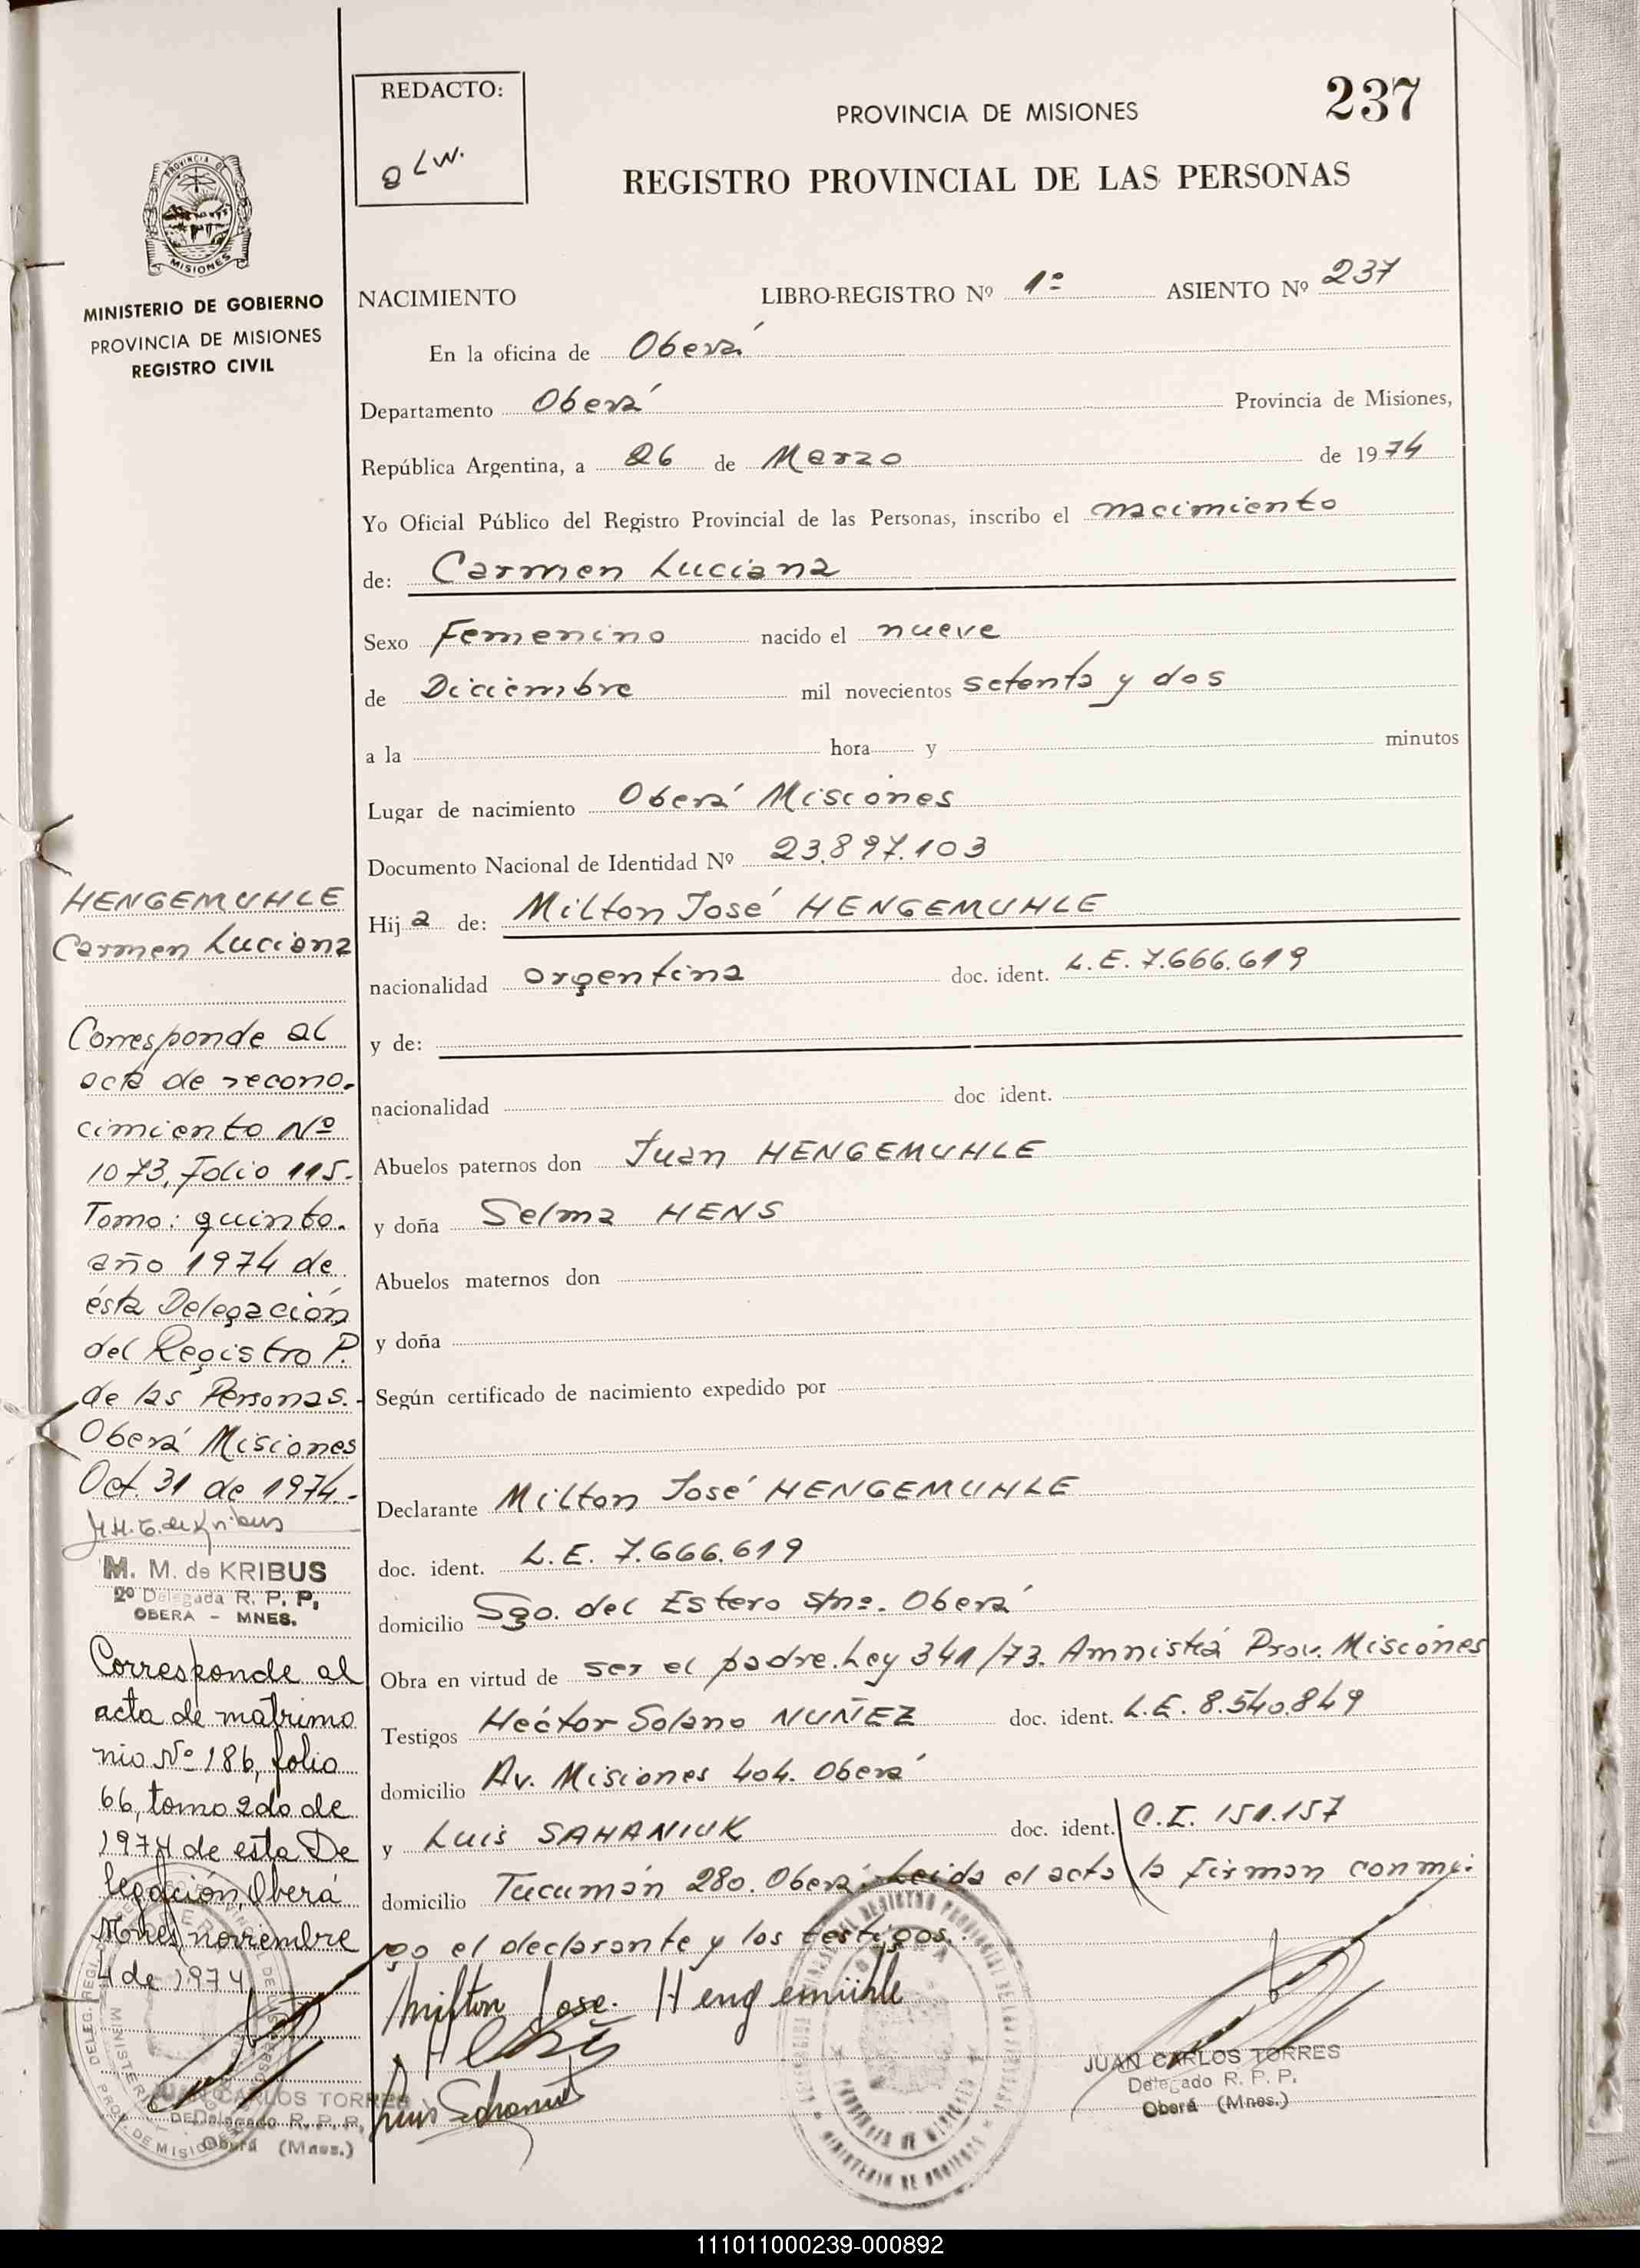 REDACTO:
8 LW.
PROVINCIA DE MISIONES
237
REGISTRO PROVINCIAL DE LAS PERSONAS
PROVINCIA DE
MISIONES
MINISTERIO DE GOBIERNO
PROVINCIA DE MISIONES
REGISTRO CIVIL
NACIMIENTO LIBRO-REGISTRO Nº 1º ASIENTO Nº 237
En la oficina de Oberá
Departamento Oberá Provincia de Misiones,
República Argentina, a 26 de Marzo de 1974
Yo Oficial Público del Registro Provincial de las Personas, inscribo el nacimiento
de: Carmen Luciana
Sexo Femenino nacido el nueve
de Diciembre mil novecientos setenta y dos
a la hora y minutos
Lugar de nacimiento Oberá Misiones
Documento Nacional de Identidad Nº 23.897.103
Hija de: Milton José HENGEMUHLE
nacionalidad argentina doc. ident. L.E. 7.666.619
y de:
nacionalidad doc ident.
Abuelos paternos don Juan HENGEMUHLE
y doña Selma HENS
Abuelos maternos don
y doña
Según certificado de nacimiento expedido por
Declarante Milton José HENGEMUHLE
doc. ident. L.E. 7.666.619
domicilio Sgo. del Estero s/nº. Oberá
Obra en virtud de ser el padre. Ley 341/73. Amnistía Prov. Misiones
Testigos Héctor Solano NUÑEZ doc. ident. L.E. 8.540.849
domicilio Av. Misiones 404. Oberá
y Luis SAHANIUK doc. ident. C.I. 151.157
domicilio Tucumán 280. Oberá. Leida el acta la firman conmi-
go el declarante y los testigos.
Milton Jose. Hengemühle
JUAN CARLOS TORRES
Delegado R. P. P.
Oberá (Mnes.)
HENGEMUHLE
Carmen Luciana
Corresponde al
acta de recono-
cimiento Nº
1073, Folio 115.
Tomo: quinto.
año 1974 de
ésta Delegación
del Registro P.
de las Personas.-
Oberá Misiones
Oct. 31 de 1974.-
M. M. de KRIBUS
2º Delegada R. P. P.
OBERA - MNES.
Corresponde al
acta de matrimo
nio Nº 186, folio
66, tomo 2do de
1974 de esta De
legación, Oberá
Mnes, noviembre
4 de 1974
JUAN CARLOS TORRES
Delegado R. P. P.
Oberá (Mnes.)
111011000239-000892